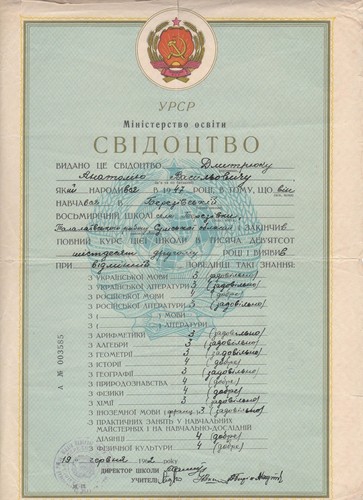 УРСР
Міністерство освіти
СВІДОЦТВО
ВИДАНО ЦЕ СВІДОЦТВО Дмитрюку
Анатолію Васильовичу
ЯКИЙ НАРОДИВСЯ В 1947 РОЦІ, В ТОМУ, ЩО він
НАВЧАВСЯ В Березівській
ВОСЬМИРІЧНІЙ ШКОЛІ села Березівки,
Талалаївського району, Сумської області І ЗАКІНЧИВ
ПОВНИЙ КУРС ЦІЄЇ ШКОЛИ В ТИСЯЧА ДЕВ'ЯТСОТ
шістдесят другому РОЦІ І ВИЯВИВ
ПРИ відмінній ПОВЕДІНЦІ ТАКІ ЗНАННЯ:
З УКРАЇНСЬКОЇ МОВИ 3 (задовільно)
З УКРАЇНСЬКОЇ ЛІТЕРАТУРИ 3 (задовільно)
З РОСІЙСЬКОЇ МОВИ 4 (добре)
З РОСІЙСЬКОЇ ЛІТЕРАТУРИ 3 (задовільно)
З ( ) МОВИ
З ( ) ЛІТЕРАТУРИ
З АРИФМЕТИКИ 3 (задовільно)
З АЛГЕБРИ 3 (задовільно)
З ГЕОМЕТРІЇ 3 (задовільно)
З ІСТОРІЇ 4 (добре)
З ГЕОГРАФІЇ 3 (задовільно)
З ПРИРОДОЗНАВСТВА 4 (добре)
З ФІЗИКИ 4 (добре)
З ХІМІЇ 3 (задовільно)
З ІНОЗЕМНОЇ МОВИ (франц.) 3 (задовільно)
З ПРАКТИЧНИХ ЗАНЯТЬ У НАВЧАЛЬНИХ
МАЙСТЕРНЯХ І НА НАВЧАЛЬНО-ДОСЛІДНІЙ
ДІЛЯНЦІ 4 (добре)
З ФІЗИЧНОЇ КУЛЬТУРИ 4 (добре)
19 червня 1962 РОКУ
ДИРЕКТОР ШКОЛИ
УЧИТЕЛІ
А № 003585